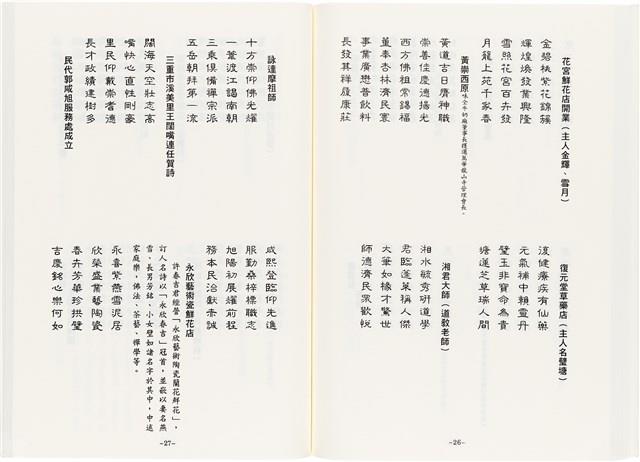 花宮鮮花店開業(主人金輝、雪月)
金碧扶紫花錦簇
輝煌煥發業興隆
雪照花宮百卉發
月籠上苑千家春
黃崇西原味全牛奶廠董事長後選萬華龍山寺管理會長。
黃道吉日膺神職
崇善佳慶德揚光
西方佛祖常錫福
董奉杏林濟民寰
事業廣懋普飲料
長發其祥履康莊
復元堂草藥店(主人名璧塘)
復健癢疾有仙藥
元氣補中賴靈丹
璧玉非寶命為貴
塘蓮芝草瑞人間
湘君大師(道教老師)
湘水毓秀研道學
君臨蓬萊稱人傑
大筆如椽才驚世
師德濟民眾歡悅
-26-
詠達摩祖師
十方崇仰佛光耀
一葦渡江謁南朝
三乘俱備禪宗派
五岳朝拜第一流
三重市溪美里王闊嘴連任賀詩
闊海天空壯志高
嘴快心直性剛豪
里民仰戴崇耆德
長才政績建樹多
民代郭咸旭服務處成立
咸熙登臨仰先進
服勤桑梓標職志
旭陽初展耀前程
務本民治獻素誠
永欣藝術瓷鮮花店
許春吉君經營「永欣藝術陶瓷蘭花鮮花」,
訂人名詩以「永欣春吉」冠首,並嵌以妻名燕
雪、長男芳銘、小女璧如諸名字於其中,中述
家庭樂,佛法、茶藝、禪學等。
永喜紫燕雪泥居
欣榮盛業藝陶瓷
春卉芳華珍拱璧
吉慶銘心樂何如
-27-